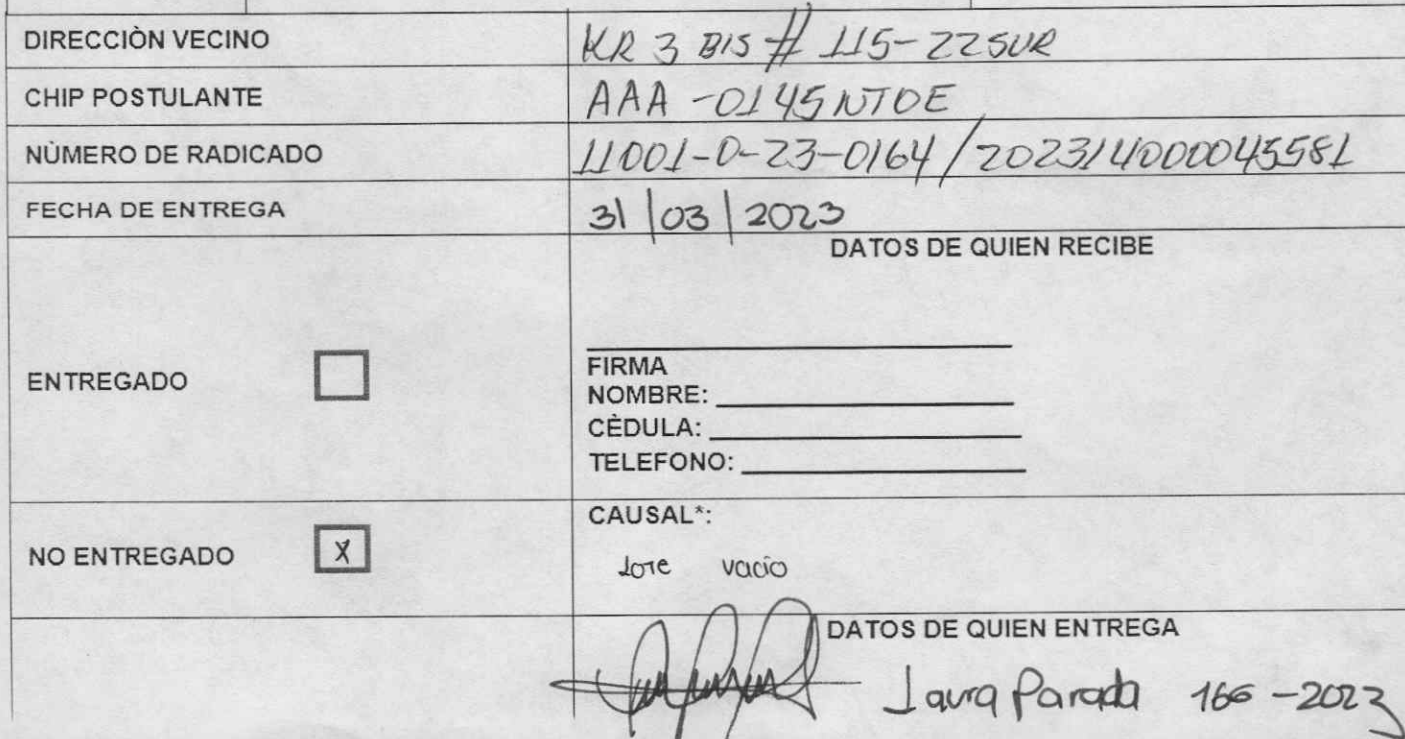 DIRECCIÒN VECINO KR 3 BIS # 115-22SUR
CHIP POSTULANTE AAA-0145NTOE
NÙMERO DE RADICADO 11001-0-23-0164/202314000045581
FECHA DE ENTREGA 31/03/2023
DATOS DE QUIEN RECIBE
ENTREGADO
FIRMA
NOMBRE:
CÈDULA:
TELEFONO:
NO ENTREGADO X
CAUSAL*:
Lote vacio
DATOS DE QUIEN ENTREGA
Laura Parada 166-2023